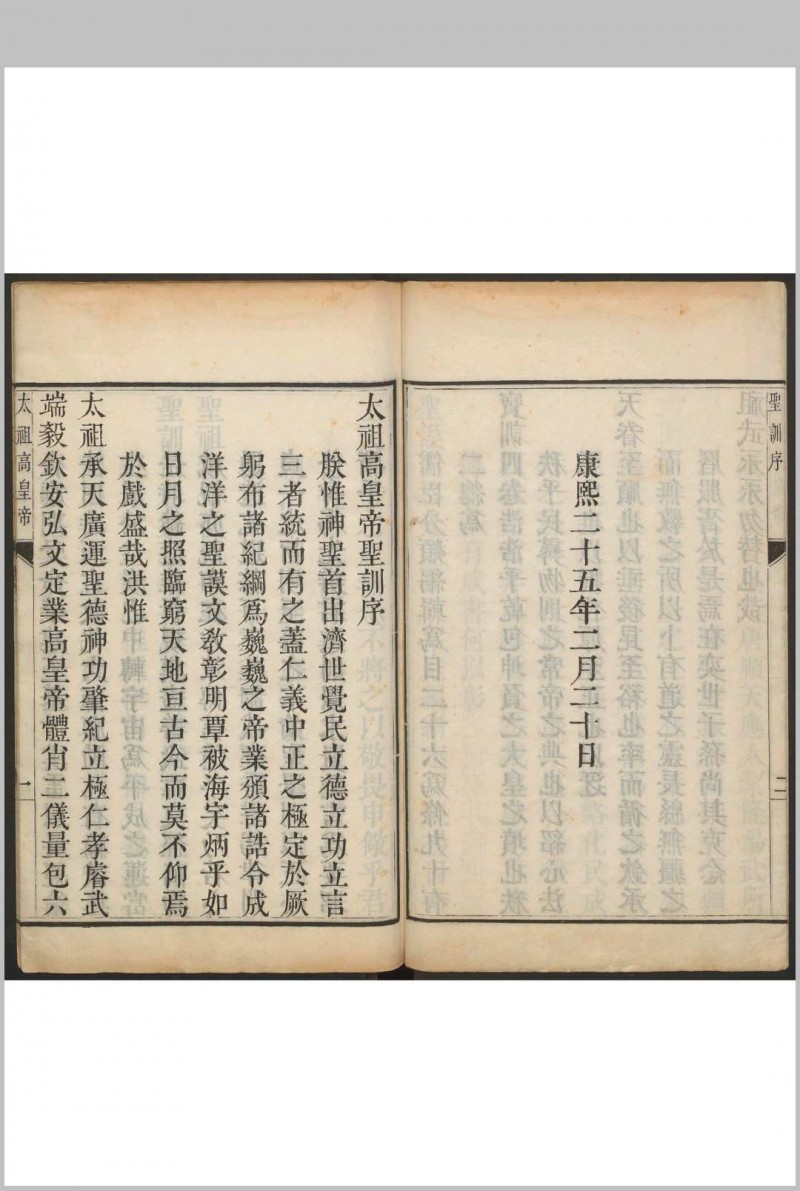 聖訓序
二
康熙二十五年二月二十日
太祖高皇帝聖訓序
朕惟神聖首出濟世覺民立德立功立言
三者統而有之蓋仁義中正之極定於厥
躬布諸紀綱爲巍巍之帝業頒諸誥令成
洋洋之聖謨文敎彰明覃被海宇炳乎如
日月之照臨窮天地亘古今而莫不仰焉
於戲盛哉洪惟
太祖承天廣運聖德神功肇紀立極仁孝睿武
端毅欽安弘文定業高皇帝體肖二儀量包六
太祖高皇帝
一